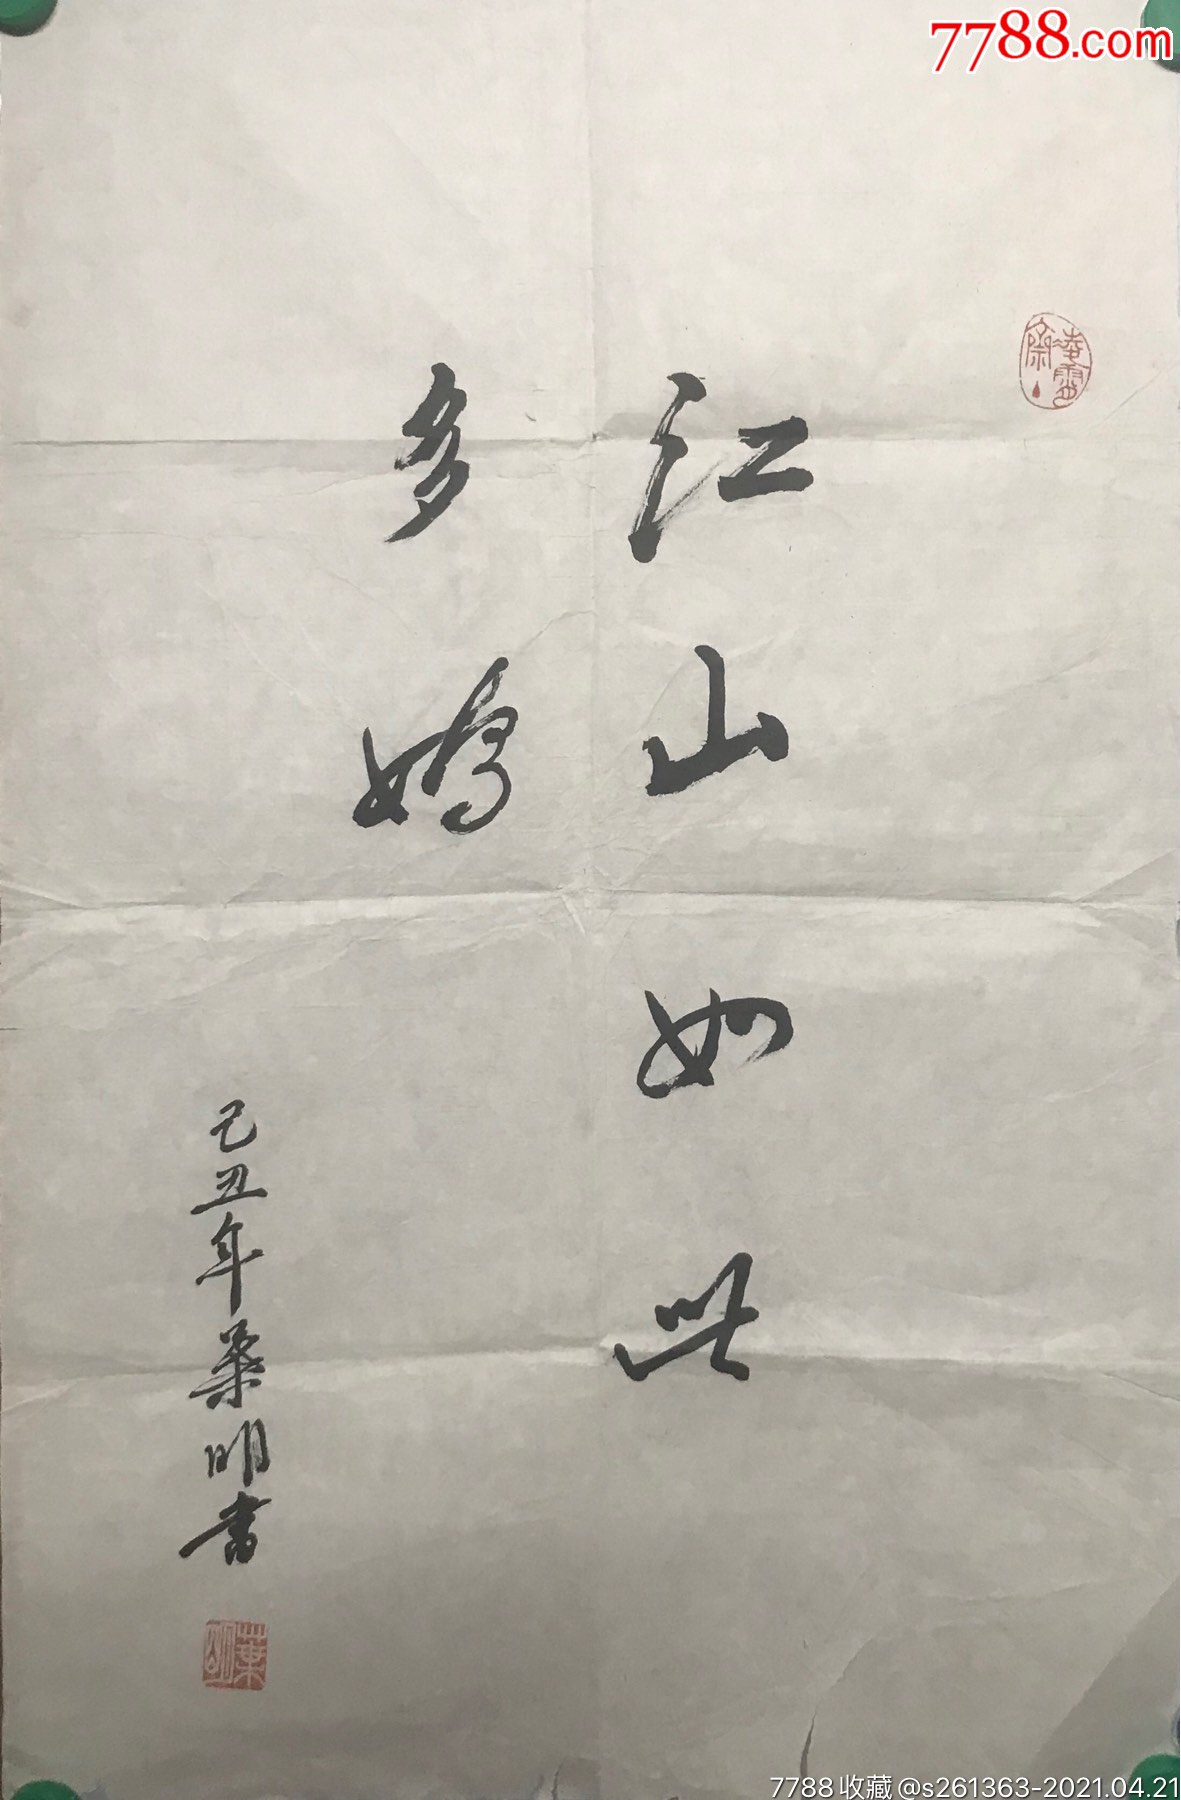 7788.com
江山如此
多娇
己丑年桑明书
7788收藏@s261363-2021.04.21